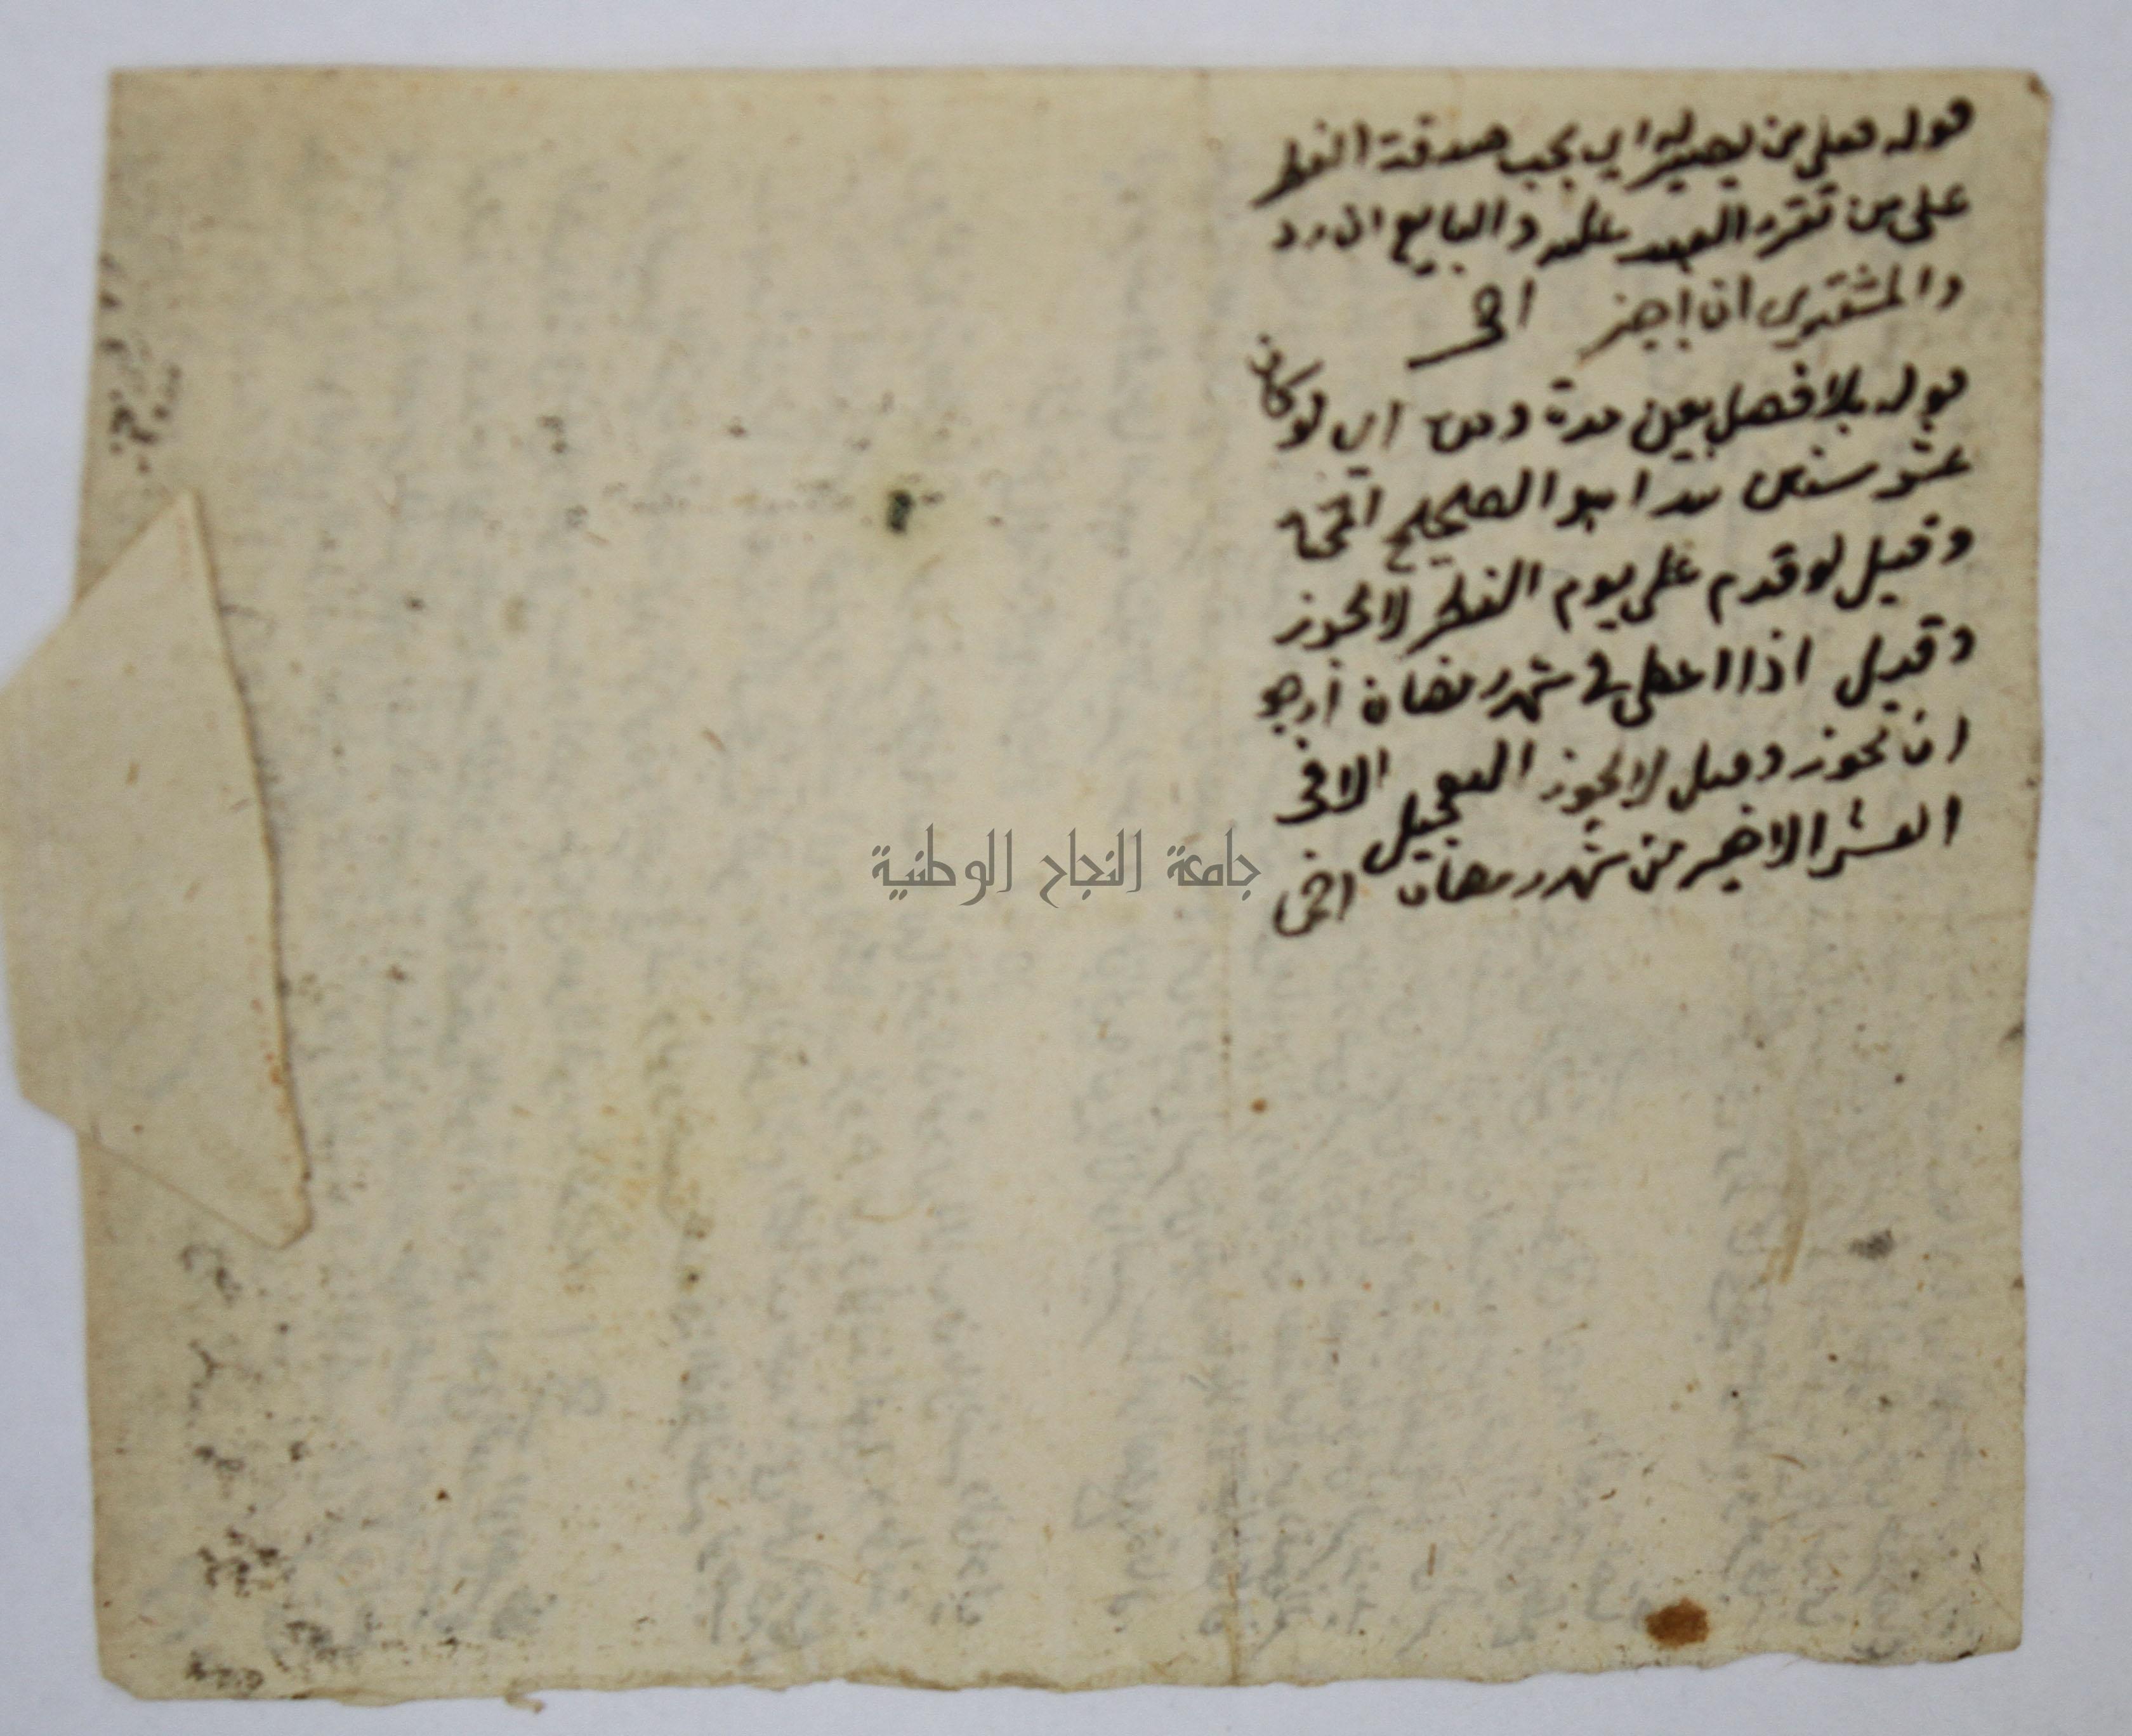 قوله فعلى من يصير له اي يجب صدقة الفطر
على من تقرر العبد عليه والبايع ان رد
والمشتري ان اجيز انتهى
قوله بلا فصل بين مدة ومدة اي لو كان
عشر سنين هو الصحيح انتهى
وقيل لو قدم على يوم الفطر لا يجوز
وقيل اذا اعطى في شهر رمضان ارجو
ان يجوز وقيل لا يجوز التعجيل الا في
العشر الاخير من شهر رمضان انتهى
جامعة النجاح الوطنية